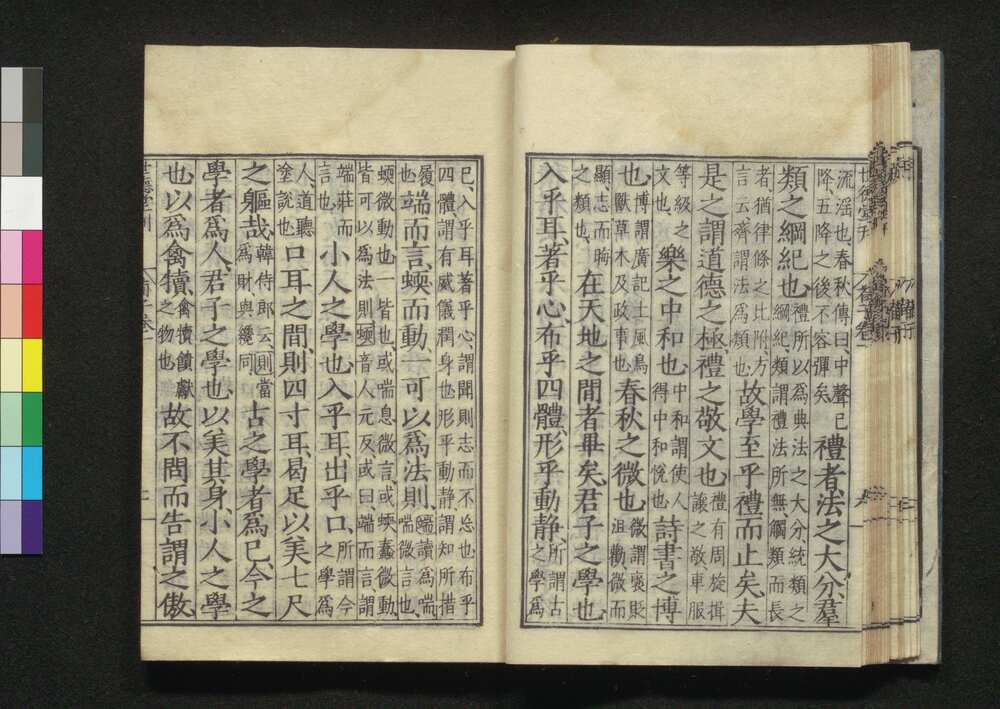 流淫也、春秋傳曰中聲已
降五降之後不容彈矣
禮者法之大分、羣
類之綱紀也
禮所以為典法之大分、統類之
綱紀、類謂禮法所無觸類而長
者、猶律條之比附、方
言云齊謂法為類也
故學至乎禮而止矣、夫
是之謂道德之極、禮之敬文也
禮有周旋揖
讓之敬、車服
等級之
文也、
樂之中和也
中和謂使人
得中和悅也
詩書之博
也
博謂廣記土風鳥
獸草木及政事也
春秋之微也
微謂褒貶
沮勸、微而
顯、志而晦
之類也、
在天地之間者畢矣、君子之學也
入乎耳、著乎心、布乎四體、形乎動静、
所謂古
之學為
已、入乎耳著乎心、謂聞則志而不忘也、布乎
四體、謂有威儀潤身也、形乎動静、謂知所措
履
也
端而言、蝡而動、一可以爲法則、
端讀為喘
喘微言也、
蝡微動也、一皆也、或喘息微言、或蝡蠢微動、
皆可以為法則、蝡音人元反、或曰、端而言、謂
端莊而
言也
小人之學也、入乎耳、出乎口、
所謂今
之學為
人、道聽
塗說也
口耳之間、則四寸耳、曷足以美七尺
之軀哉
韓侍郎云、則當
為財與纔同
古之學者爲已、今之
學者爲人、君子之學也、以美其身、小人之學
也、以爲禽犢、
禽犢饋獻
之物也、
故不問而告謂之傲、